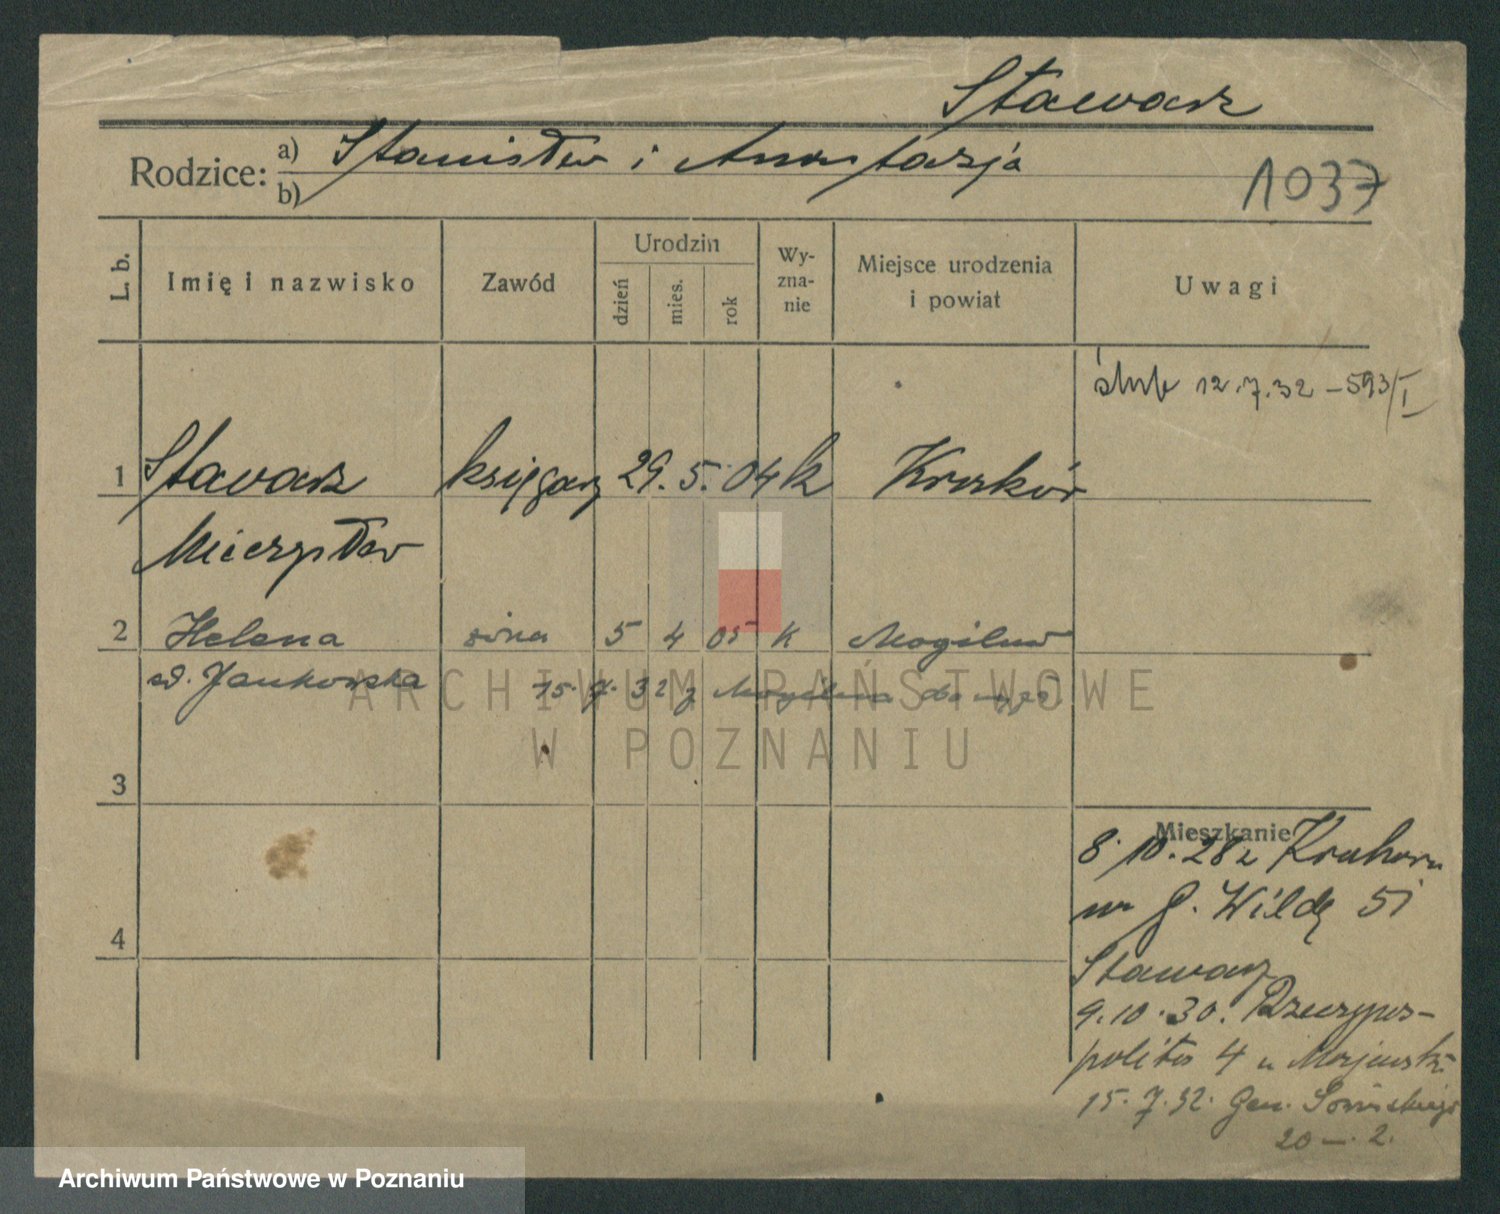 Stawarz
Rodzice: a) Stanisław i Anastazja
b)
1037
L. b.
Imię i nazwisko
Zawód
Urodzin
dzień
mies.
rok
Wy-
zna-
nie
Miejsce urodzenia
i powiat
Uwagi
ślub 12.7.32 – 593/I
1 Stawarz księgarz 29. 5. 04 k Kraków
Mieczysław
2 Helena żona 5 4 05 k Mogilno
Jankowska 15. 7. 32 z Mogilna do
ARCHIWUM PAŃSTWOWE
W POZNANIU
3
4
Mieszkanie
8. 10. 28 z Krakowa
G. Wildę 51
Stawarz
9.10.30. Rzeczypos-
politej 4 u Majewski
15. 7. 32. Gen. Sowińskiego
20 – 2.
Archiwum Państwowe w Poznaniu